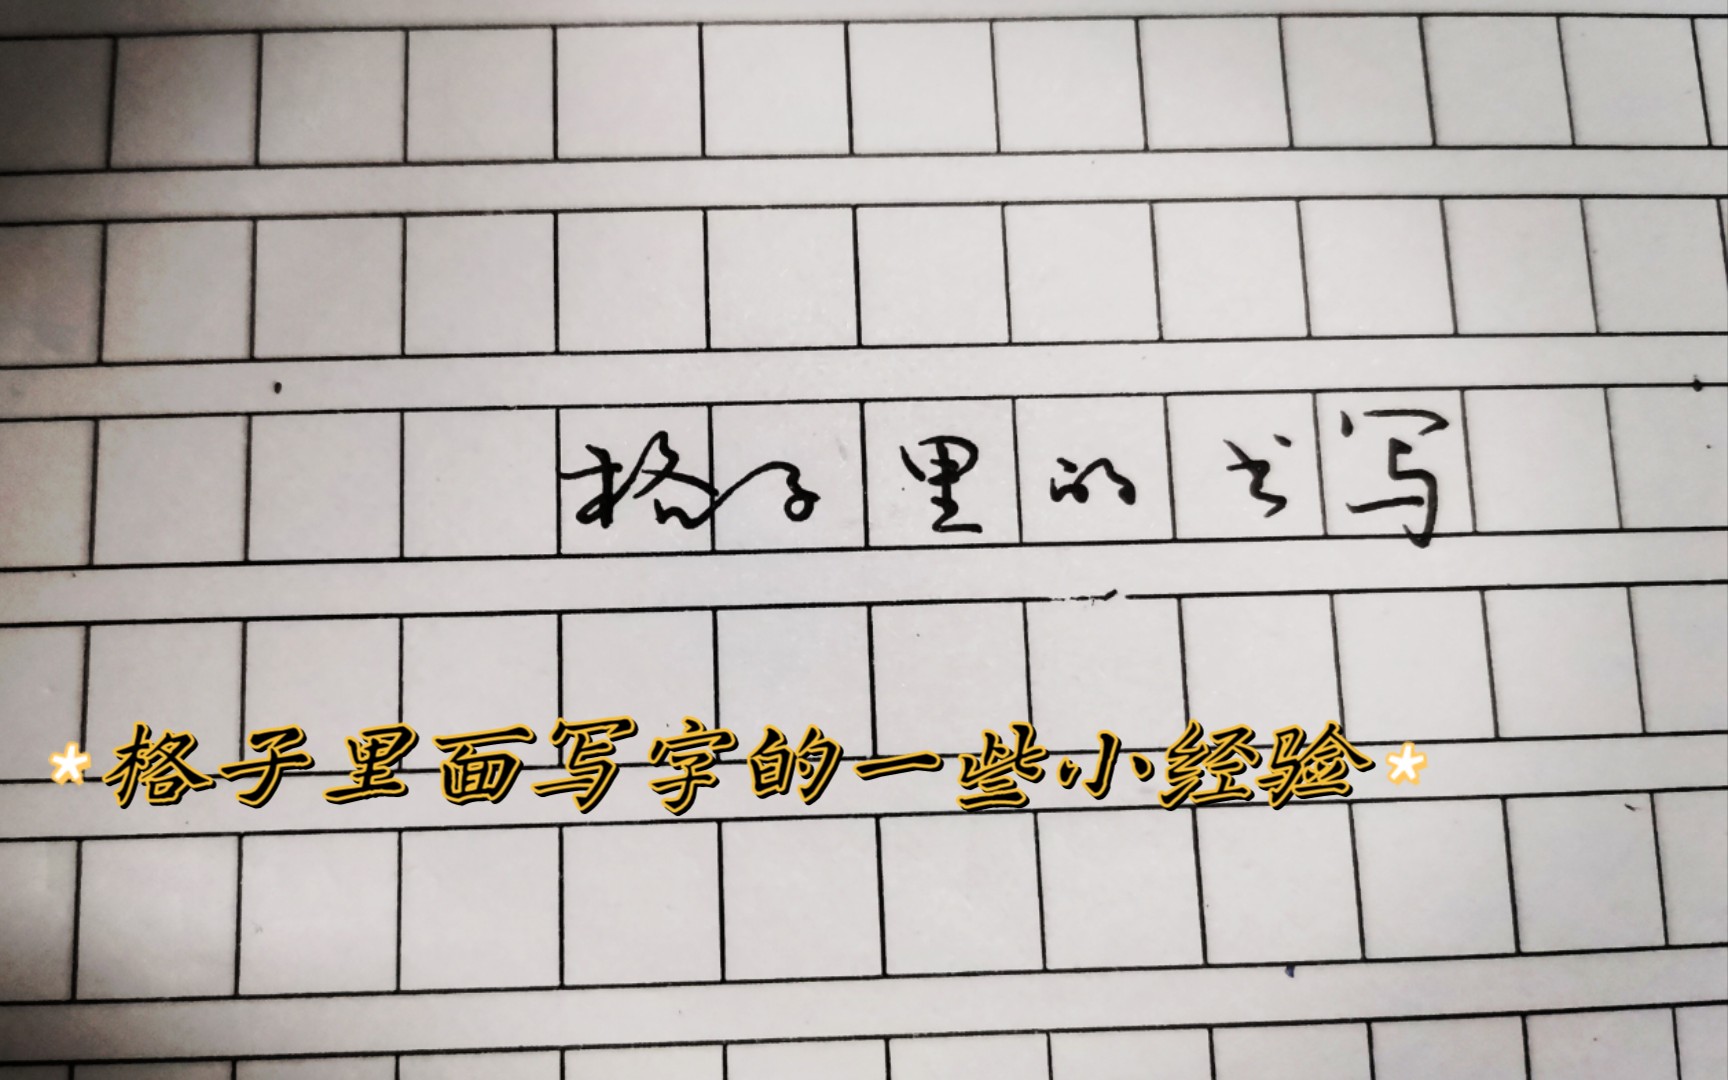 格子里的书写
*格子里面写字的一些小经验*